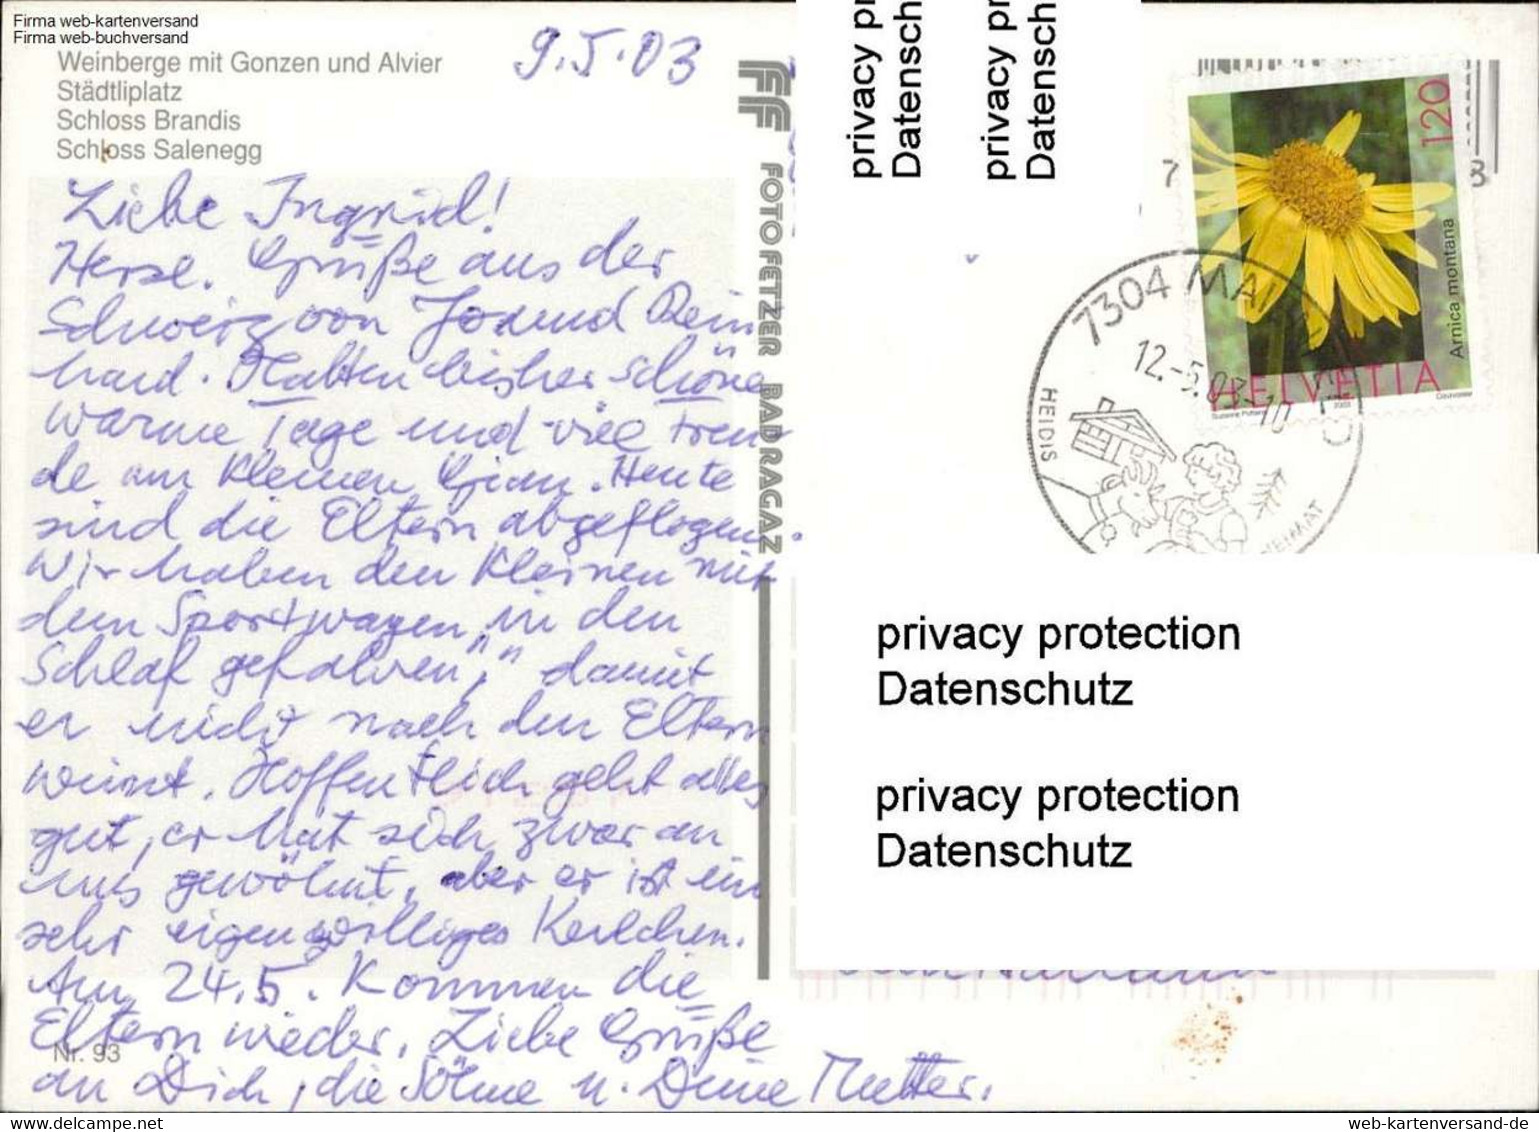 Firma web-kartenversand
Firma web-buchversand
Weinberge mit Gonzen und Alvier
Städtliplatz
Schloss Brandis
Schloss Salenegg
9.5.03
Liebe Ingrid!
Herzl. Grüße aus der
Schweiz von J und Rein
hard. Hatten bisher schöne
warme Tage und viel Freu
de am kleinen Gian. Heute
sind die Eltern abgeflogen.
Wir haben den Kleinen mit
dem Sportwagen „in den
Schlaf gefahren", damit
er nicht nach den Eltern
weint. Hoffentlich geht alles
gut, er hat sich zwar an
uns gewöhnt, aber er ist ein
sehr eigenwilliges Kerlchen.
Am 24.5. kommen die
Eltern wieder. Liebe Grüße
an Dich, die Söhne u. Deine Mutter.
Nr. 93
FF FOTO FETZER BAD RAGAZ
privacy pr
Datensch
privacy pr
Datensch
120
Arnica montana
HELVETIA
2003
Courvoisier
7304 MAI
12.-5.03.-10
HEIDIS
HEIMAT
privacy protection
Datenschutz
privacy protection
Datenschutz
web-kartenversand-de